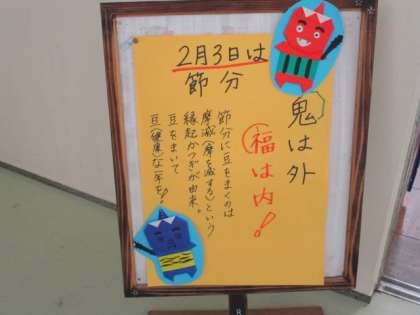 2月3日は
節分
鬼は外
福は内!
節分に豆をまくのは
摩滅(魔を滅する)という
縁起かつぎが由来。
豆をまいて
豆(健康)な一年を!